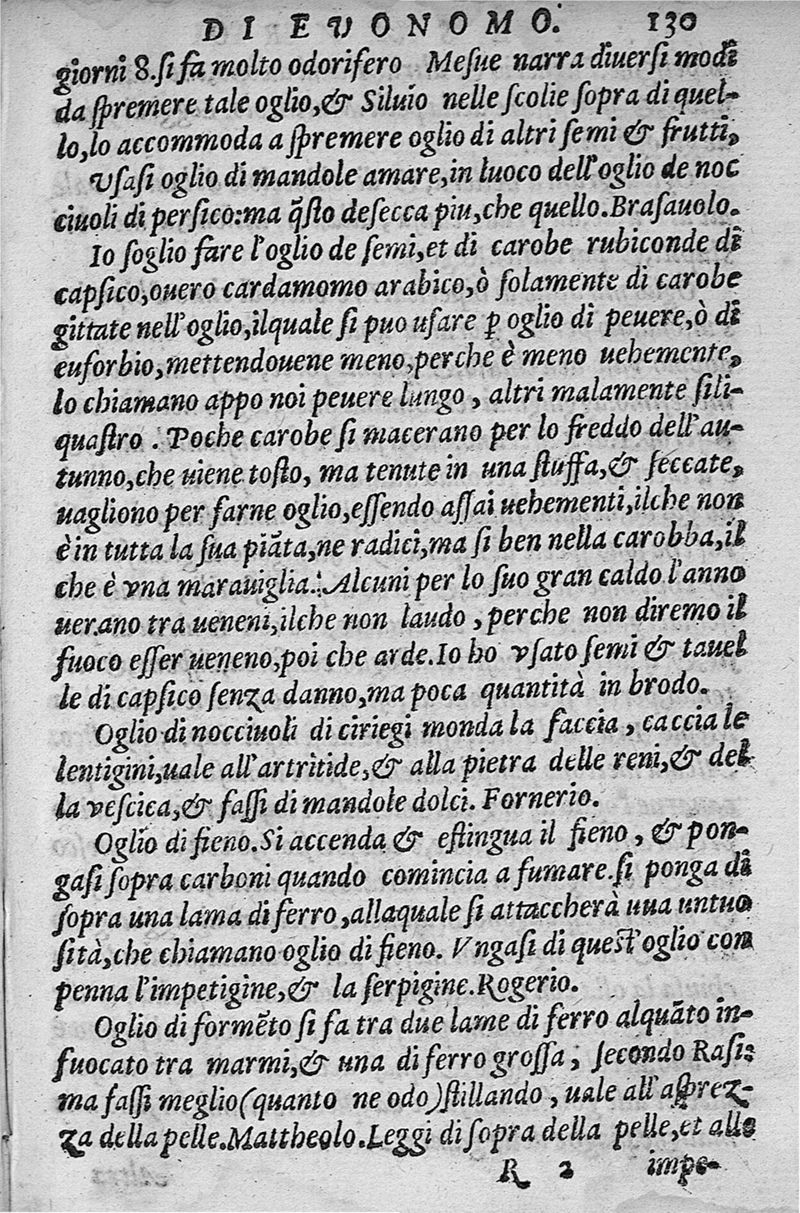 DI EVONOMO. 130
giorni 8.ſi fa molto odorifero Meſue narra diuerſi modi
da ſpremere tale oglio,& Siluio nelle ſcolie ſopra di quel-
lo,lo accommoda a ſpremere oglio di altri ſemi & frutti,
Vſaſi oglio di mandole amare,in luoco dell'oglio de noc
ciuoli di perſico:ma q̃ſto deſecca piu,che quello.Braſauolo.
Io ſoglio fare l'oglio de ſemi,et di carobe rubiconde di
capſico,ouero cardamomo arabico,ò ſolamente di carobe
gittate nell'oglio,ilquale ſi puo uſare ꝑ oglio di peuere,ò di
euforbio,mettendouene meno,perche è meno uehemente,
lo chiamano appo noi peuere lungo, altri malamente ſili-
quaſtro. Poche carobe ſi macerano per lo freddo dell'au-
tunno,che uiene toſto, ma tenute in una ſtuffa,& ſeccate,
uagliono per farne oglio,eſſendo aſſai uehementi,ilche non
è in tutta la ſua piãta,ne radici,ma ſi ben nella carobba,il
che è vna marauiglia. Alcuni per lo ſuo gran caldo l'anno
uerano tra ueneni,ilche non laudo, perche non diremo il
fuoco eſſer ueneno,poi che arde.Io ho vſato ſemi & tauel
le di capſico ſenza danno,ma poca quantità in brodo.
Oglio di nocciuoli di ciriegi monda la faccia, caccia le
lentigini,uale all'artritide,& alla pietra delle reni,& del
la veſcica,& faſſi di mandole dolci. Fornerio.
Oglio di fieno.Si accenda & eſtingua il fieno, & pon-
gaſi ſopra carboni quando comincia a fumare.ſi ponga di
ſopra una lama di ferro,allaquale ſi attaccherà uua untuo
ſità,che chiamano oglio di fieno. Vngaſi di queſt'oglio con
penna l'impetigine,& la ſerpigine.Rogerio.
Oglio di formẽto ſi fa tra due lame di ferro alquãto in-
fuocato tra marmi,& una di ferro groſſa, ſecondo Raſi:
ma faſſi meglio(quanto ne odo)ſtillando, uale all'aſprez-
za della pelle.Mattheolo.Leggi di ſopra della pelle,et alle
R 2 impe-